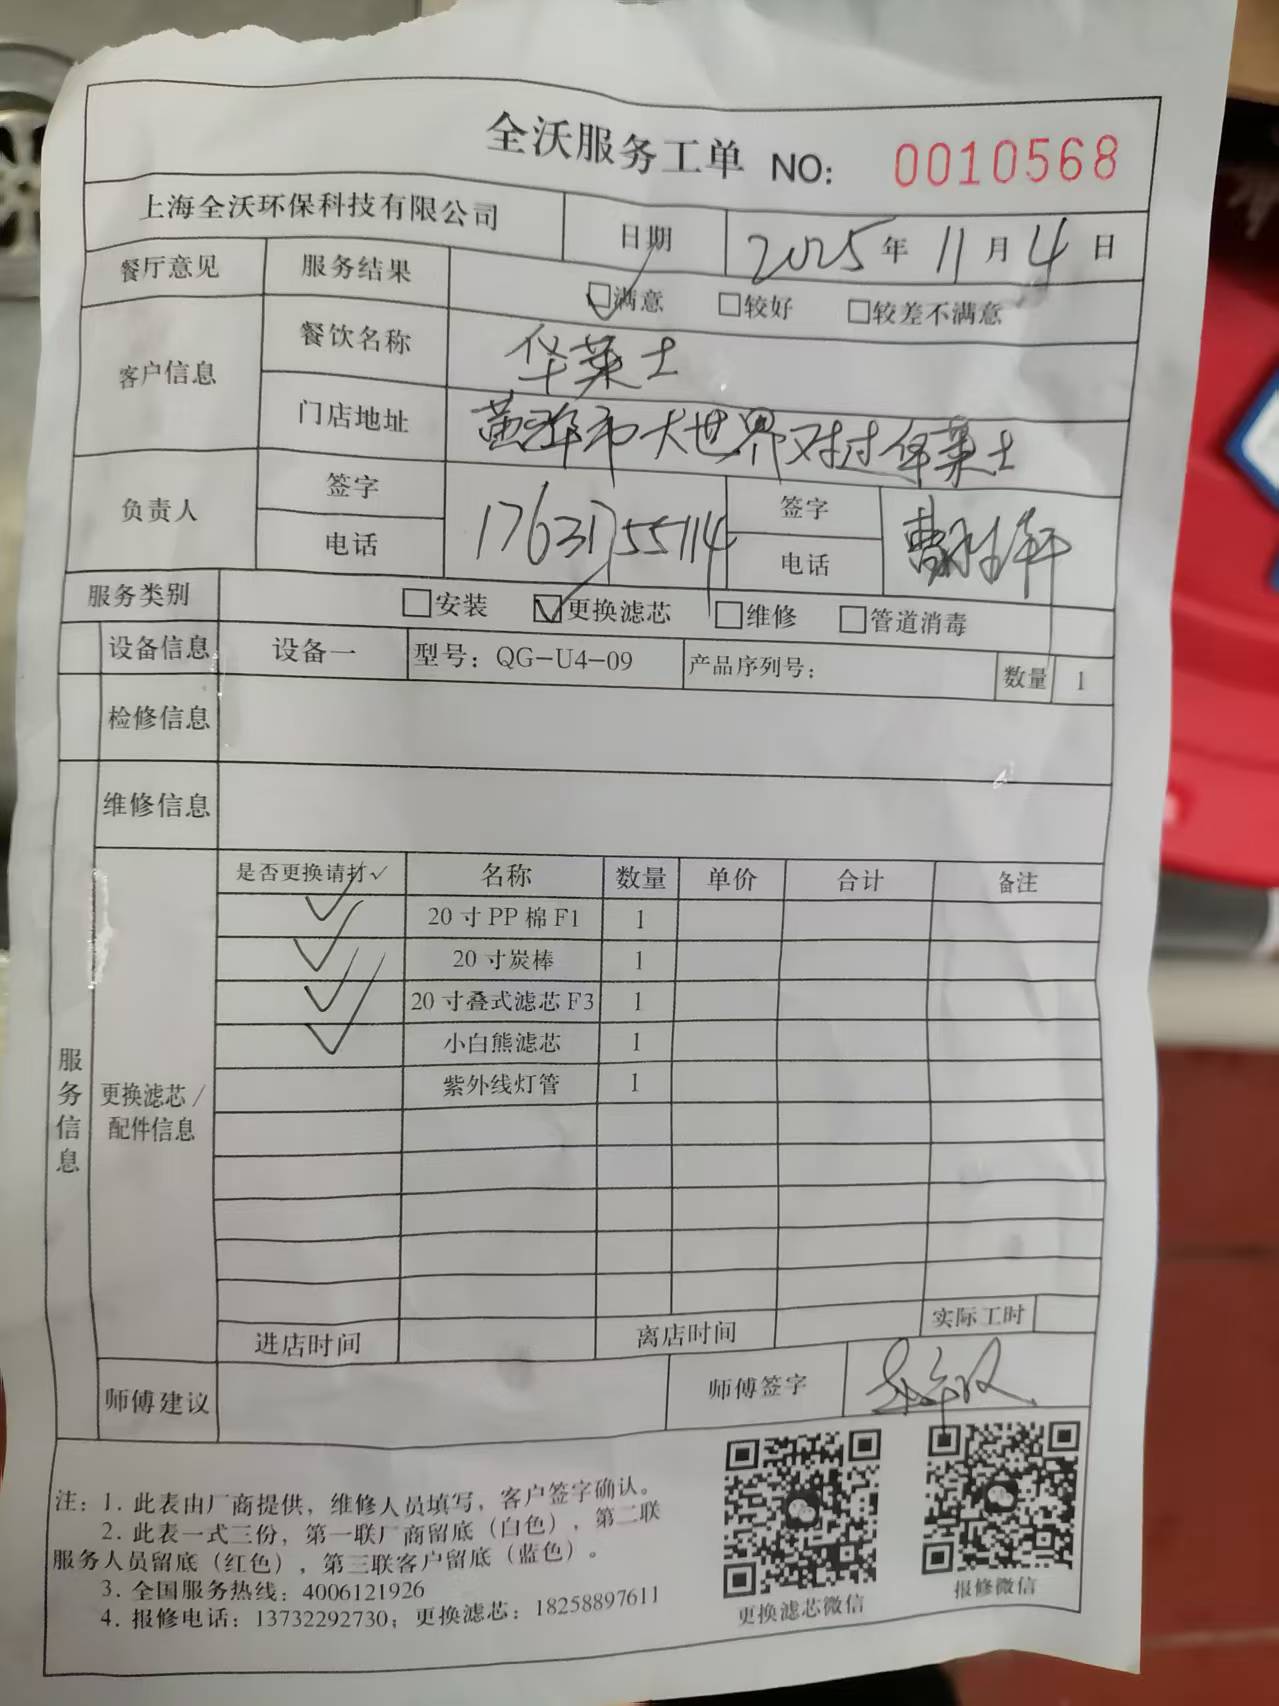 全沃服务工单 NO: 0010568
上海全沃环保科技有限公司 日期 2025年11月4日
餐厅意见 服务结果 ☑满意 □较好 □较差不满意
客户信息 餐饮名称 华莱士
门店地址 黄骅市大世界对过华莱士
负责人 签字 17631755114 签字
电话 电话
服务类别 □安装 ☑更换滤芯 □维修 □管道消毒
设备信息 设备一 型号：QG-U4-09 产品序列号： 数量 1
检修信息
维修信息
是否更换请打✓ 名称 数量 单价 合计 备注
✓ 20寸PP棉F1 1
✓ 20寸炭棒 1
✓ 20寸叠式滤芯F3 1
✓ 小白熊滤芯 1
紫外线灯管 1
服务信息
更换滤芯/
配件信息
进店时间 离店时间 实际工时
师傅建议 师傅签字
注：1. 此表由厂商提供，维修人员填写，客户签字确认。
2. 此表一式三份，第一联厂商留底（白色），第二联
服务人员留底（红色），第三联客户留底（蓝色）。
3. 全国服务热线：4006121926
4. 报修电话：13732292730；更换滤芯：18258897611
更换滤芯微信 报修微信